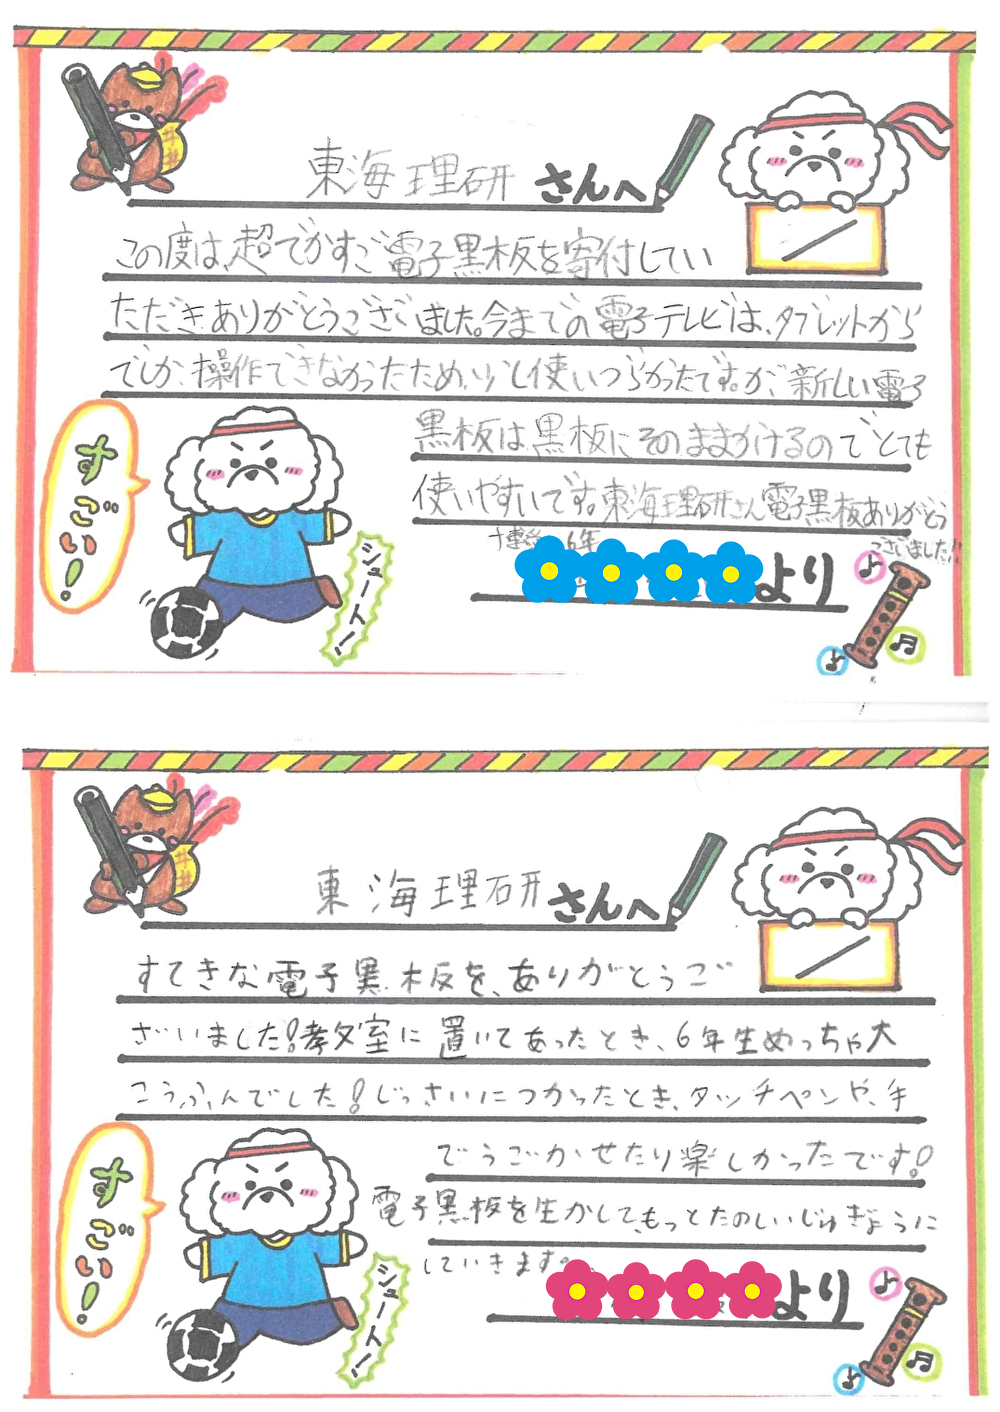 東海理研さんへ
この度は、超でかすご電子黒板を寄付してい
ただきありがとうございました。今までの電子テレビは、タブレットから
でしか、操作できなかったため、少し使いづらかったです。が、新しい電子
黒板は、黒板にそのままかけるのでとても
使いやすいです。東海理研さん電子黒板ありがとう
ございました!!
6年
より
すごい!
シュート!
東海理研さんへ
すてきな電子黒板を、ありがとうご
ざいました!教室に置いてあったとき、6年生めっちゃ大
こうふんでした!じっさいにつかったとき、タッチペンや、手
でうごかせたり楽しかったです!
電子黒板を生かしてもっとたのしいじゅぎょうに
していきます。
より
すごい!
シュート!